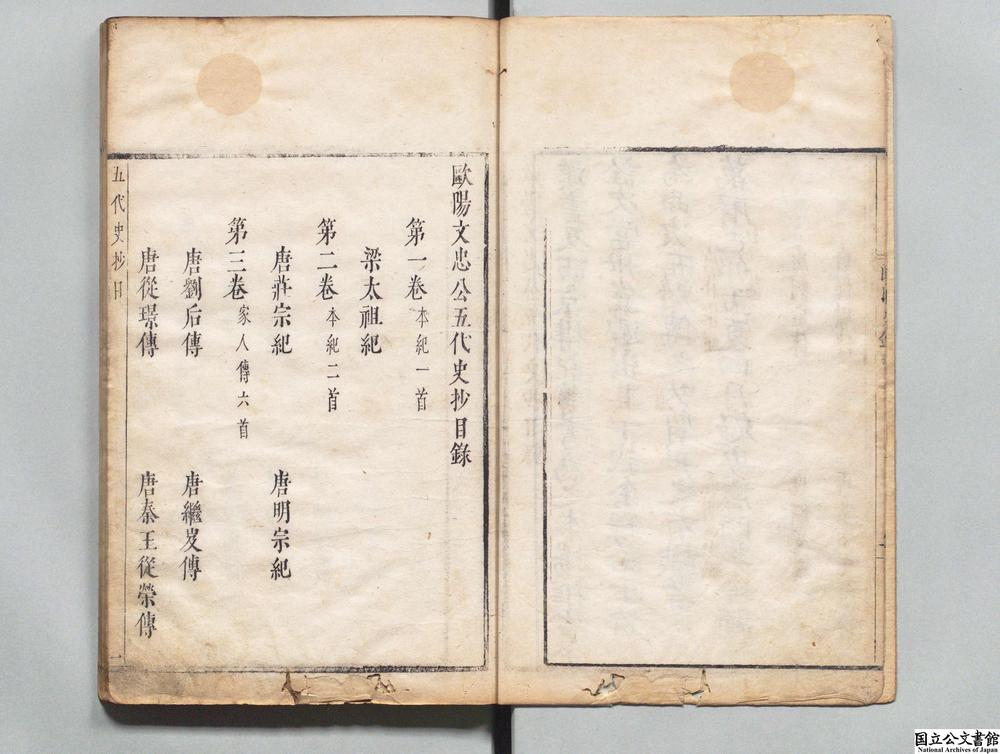 歐陽文忠公五代史抄目錄
第一卷 本紀一首
梁太祖紀
第二卷 本紀二首
唐莊宗紀 唐明宗紀
第三卷 家人傳六首
唐劉后傳 唐繼岌傳
唐從璟傳 唐秦王從榮傳
五代史抄目
国立公文書館
National Archives of Japan